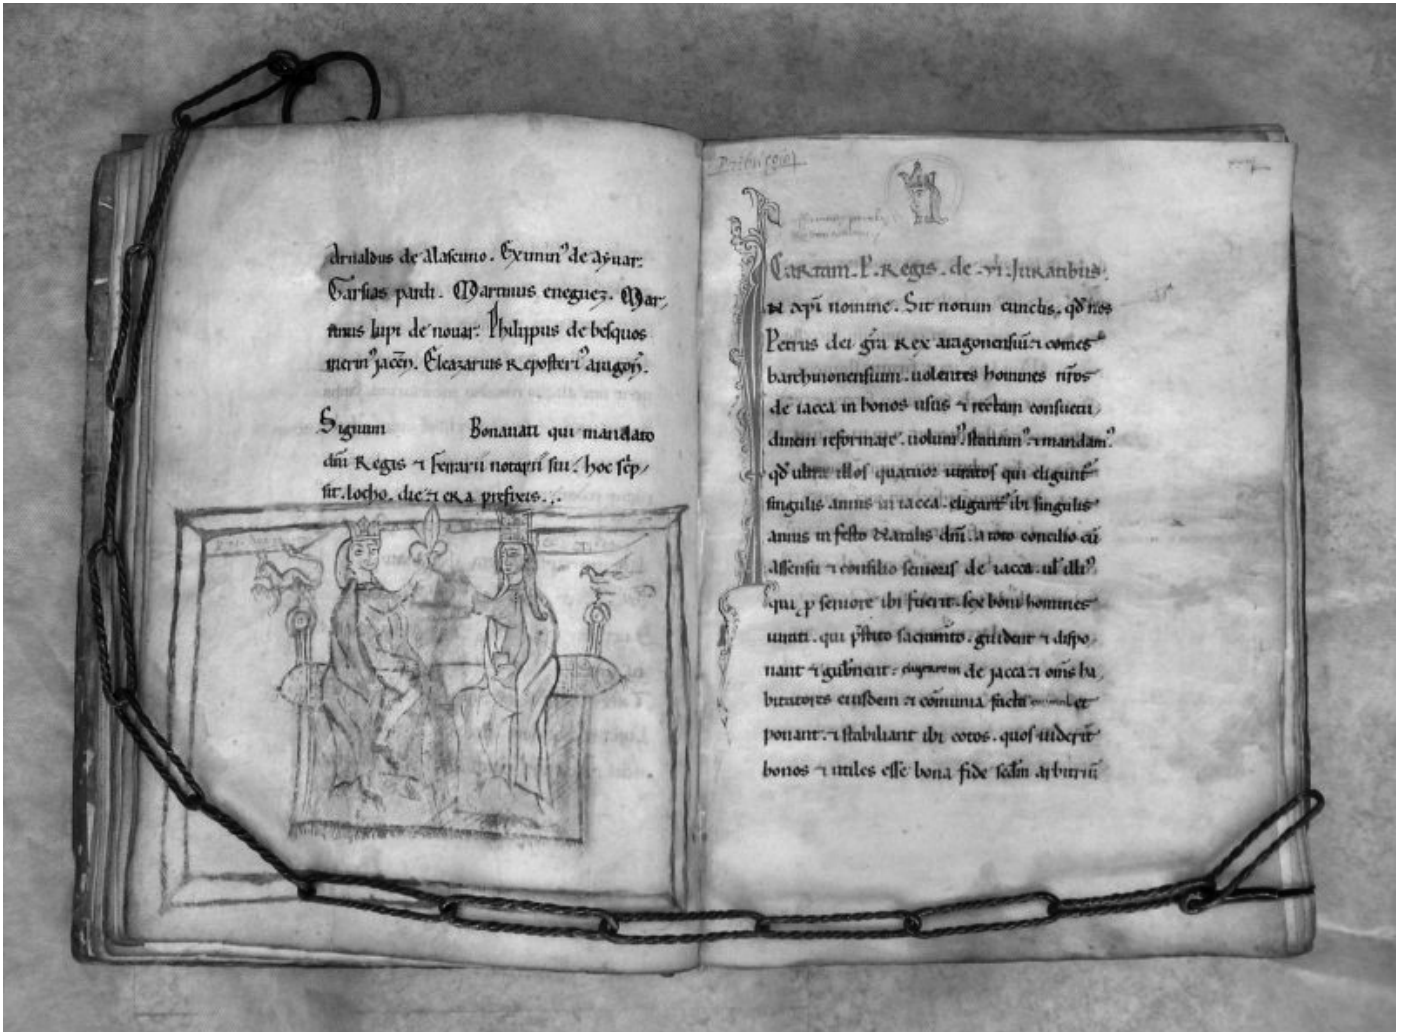 Arnaldus de Alascuno. Eximin᷒ de aẏuar.
Garsias pardi. Martinus eneguez. Mar,
tinus lupi de nouar. Philippus de besquos
merin᷒ jaceñ. Eleazarius Reposteri᷒ aragoñ.
Signum Bonanati qui mandato
dñi Regis ⁊ ferrarii notarii sui. hoc sc̃p,
sit. locho. die ⁊ era prefixis...
Cartam. P. Regis. de .vi. Juratibus.
N xp̃i nomine. Sit notum cunctis. qd̃ nos
Petrus dei gr̃a Rex aragonensiũ ⁊ comes
barchinonensium. uolentes homines nr̃os
de iacca in bonos usus ⁊ rectam consuetu,
dinem reformare. uolum᷒. statuim᷒ ⁊ mandam᷒.
qd̃ ultra illos quatuor iuratos qui eligunt᷒
singulis annis in iacca. eligant᷒ ibi singulis
annis in festo Natalis dñi. a toto concilio cũ
assensu ⁊ consilio senioris de iacca. ul̃ illi᷒
qui p seniore ibi fuerit. sex boni homines
iurati. qui p̃stito sacram̃to. guident ⁊ dispo,
nant ⁊ gub̃nent. de jacca ⁊ om̃s ha,
bitatores eiusdem ⁊ cõmunia facta et
ponant. ⁊ stabiliant ibi cotos. quos uiderĩt
bonos ⁊ utiles esse bona fide sc̃dm arbitriũ